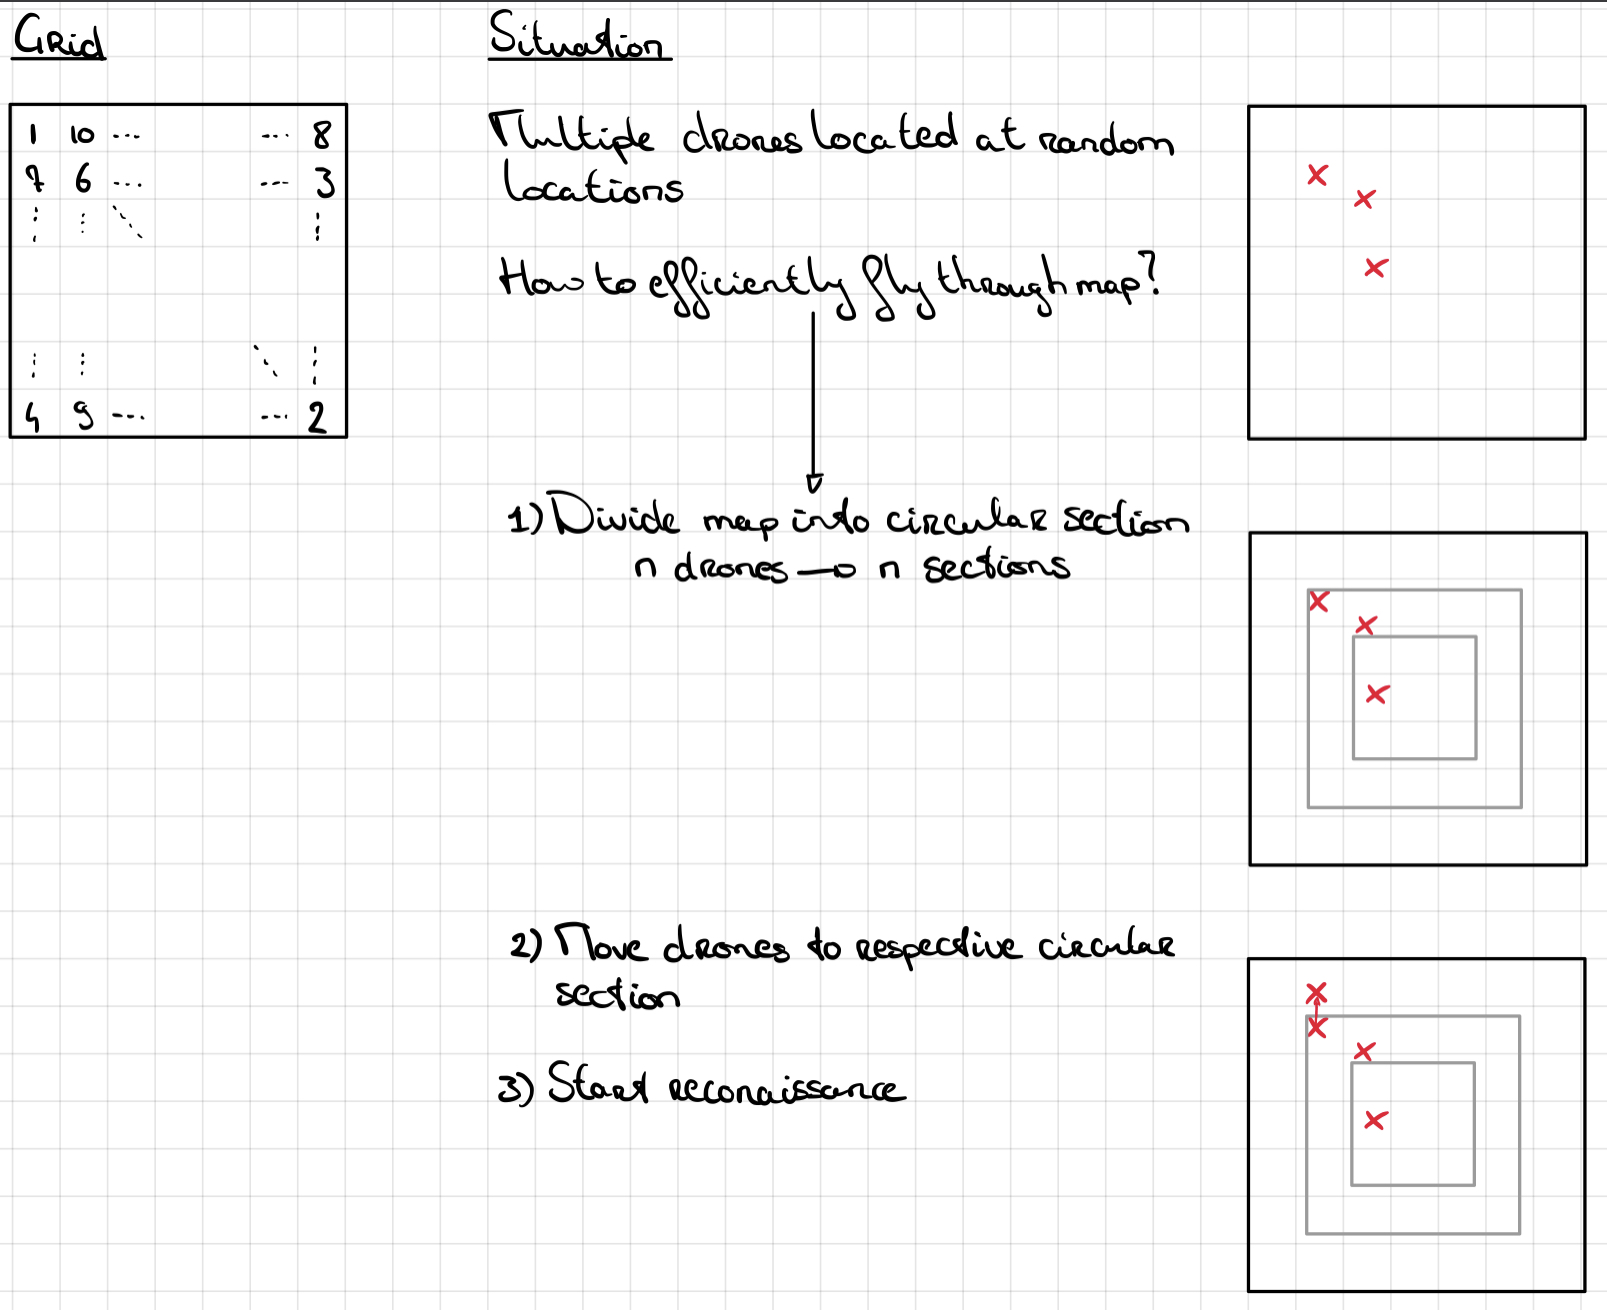 Grid
1 10 --- --- 8
7 6 --- --- 3
4 9 --- --- 2
Situation
Multiple drones located at random
locations
How to efficiently fly through map?
1) Divide map into circular section
n drones → n sections
2) Move drones to respective circular
section
3) Start reconaissance